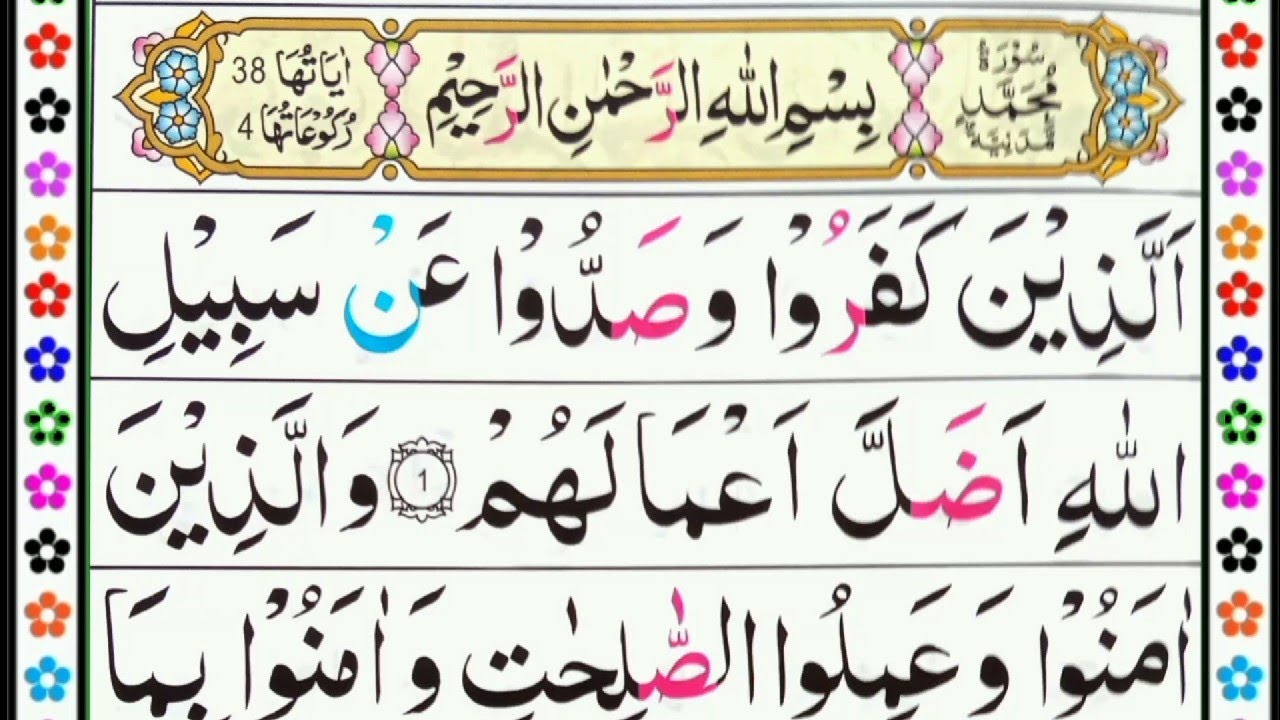 سُوْرَةُ
مُحَمَّدٍ
مَّدَنِيَّةٌ
بِسْمِ اللّٰهِ الرَّحْمٰنِ الرَّحِيْمِ
اٰيَاتُهَا 38
رُكُوْعَاتُهَا 4
اَلَّذِيْنَ كَفَرُوْا وَصَدُّوْا عَنْ سَبِيْلِ
اللّٰهِ اَضَلَّ اَعْمَالَهُمْ 1 وَالَّذِيْنَ
اٰمَنُوْا وَعَمِلُوا الصّٰلِحٰتِ وَاٰمَنُوْا بِمَا